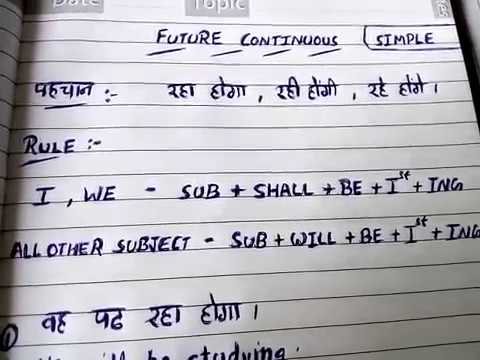 Date Topic
FUTURE CONTINUOUS (SIMPLE
पहचान :- रहा होगा, रही होंगी, रहे होंगे।
RULE :-
I, WE - SUB + SHALL + BE + Ist + ING
ALL OTHER SUBJECT - SUB + WILL + BE + Ist + ING
① वह पढ रहा होगा।
be studying.